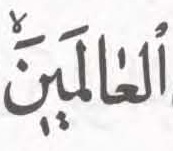 ٱلعٰالَمِينَۙ